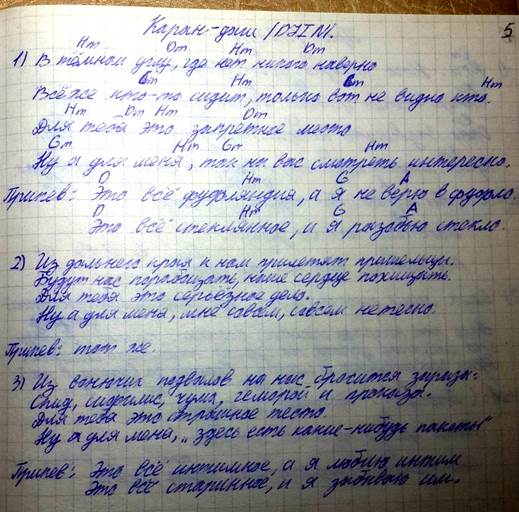 Каран-даш / DJIN.
5
Hm Dm Hm Dm
1) В тёмном углу, где нет никого наверно
Gm Hm Gm Hm
Всё же кто-то сидит, только вот не видно кто.
Hm Dm Hm Dm
Для тебя это запретное место
Gm Hm Gm Hm
Ну а для меня, так на вас смотреть интересно.
D Hm G A
Припев: Это всё фуфляндия, а я не верю в фуфло.
D Hm G A
Это всё стеклянное, и я разобью стекло.
2) Из дальнего края к нам прилетят пришельцы.
Будут нас порабощать, наше сердце похищать.
Для тебя это серьёзное дело.
Ну а для меня, мне совсем, совсем не тесно.
Припев: тот же.
3) Из вонючих подвалов на нас бросится зараза:
Спид, сифилис, чума, геморой и проказа.
Для тебя это страшное место
Ну а для меня, „здесь есть какие-нибудь пакеты"
Припев: Это всё интимное, а я люблю интим
Это всё старинное, и я забиваю им.